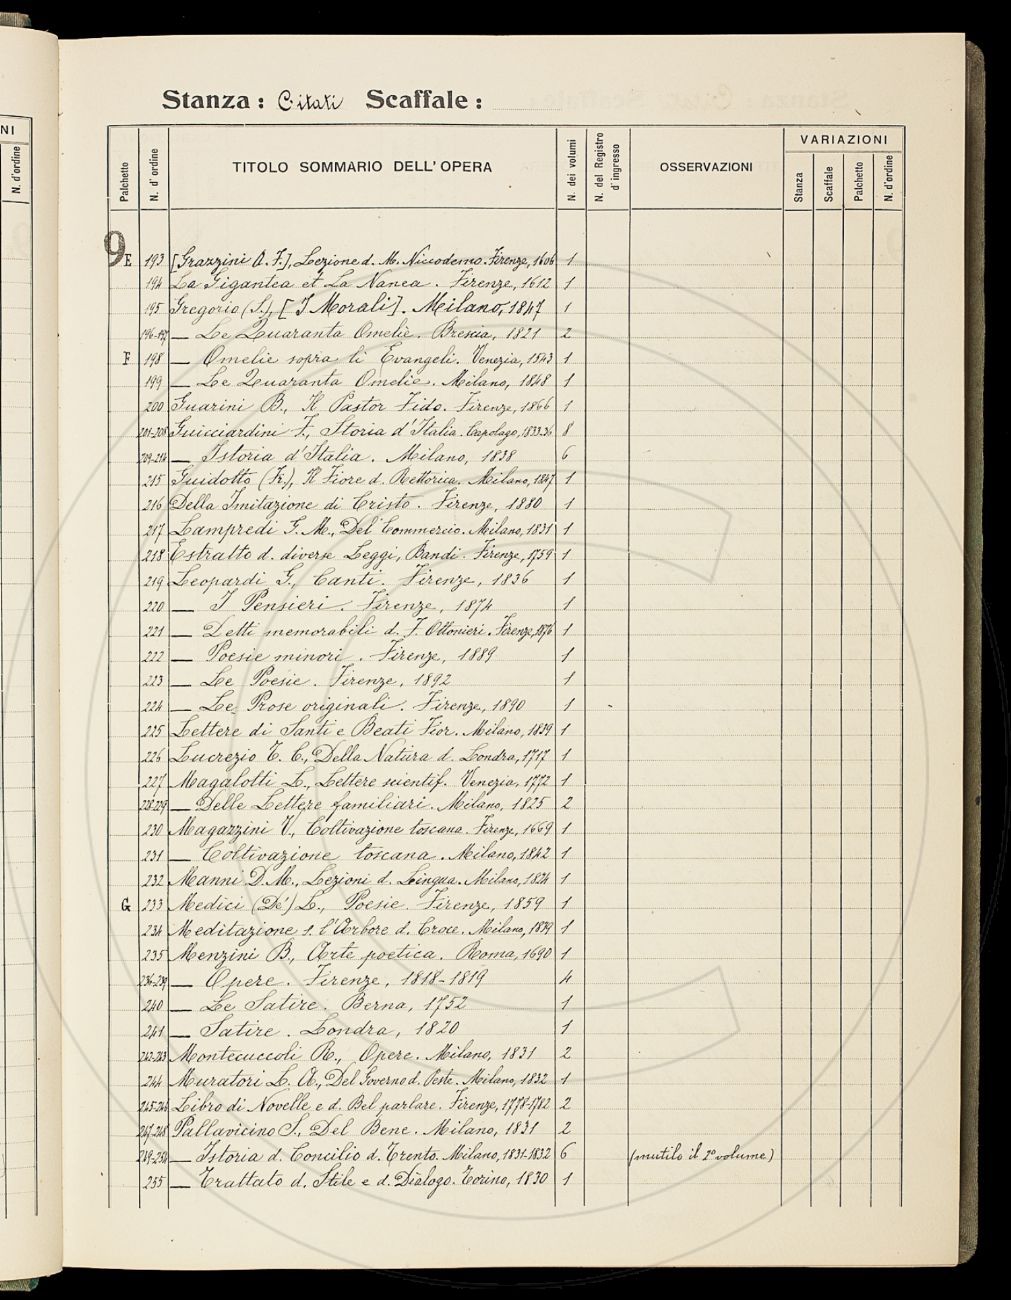 NI
N. d'ordine
Stanza: Citati Scaffale:
Palchetto
N. d'ordine
TITOLO SOMMARIO DELL'OPERA
N. dei volumi
N. del Registro d'ingresso
OSSERVAZIONI
VARIAZIONI
Stanza
Scaffale
Palchetto
N. d'ordine
9
E 193 [Grazzini A. F.], Lezione d. M. Niccodemo. Firenze, 1606 1
194 La Gigantea et La Nanea. Firenze, 1612 1
195 Gregorio (S.), [I Morali]. Milano, 1847 1
196-197 — Le Quaranta Omelie. Brescia, 1821 2
F 198 — Omelie sopra li Evangeli. Venezia, 1543 1
199 — Le Quaranta Omelie. Milano, 1848 1
200 Guarini B., Il Pastor Fido. Firenze, 1866 1
201-208 Guicciardini F., Storia d'Italia. Capolago, 1833-36 8
209-214 — Istoria d'Italia. Milano, 1838 6
215 Guidotto (Fr.), Il Fiore d. Rettorica. Milano, 1847 1
216 Della Imitazione di Cristo. Firenze, 1880 1
217 Lampredi G. M., Del Commercio. Milano, 1831 1
218 Estratto d. diverse Leggi, Bandi. Firenze, 1759 1
219 Leopardi G., Canti. Firenze, 1836 1
220 — I Pensieri. Firenze, 1874 1
221 — Detti memorabili d. F. Ottonieri. Firenze, 1876 1
222 — Poesie minori. Firenze, 1889 1
223 — Le Poesie. Firenze, 1892 1
224 — Le Prose originali. Firenze, 1890 1
225 Lettere di Santi e Beati Fior. Milano, 1839 1
226 Lucrezio T. C., Della Natura d. Londra, 1717 1
227 Magalotti L., Lettere scientif. Venezia, 1772 1
228-229 — Delle Lettere familiari. Milano, 1825 2
230 Magazzini V., Coltivazione toscana. Firenze, 1669 1
231 — Coltivazione toscana. Milano, 1842 1
232 Manni D. M., Lezioni d. Lingua. Milano, 1824 1
G 233 Medici (De') L., Poesie. Firenze, 1859 1
234 Meditazione s. l'Arbore d. Croce. Milano, 1839 1
235 Menzini B., Arte poetica. Roma, 1690 1
236-239 — Opere. Firenze, 1818-1819 4
240 — Le Satire. Berna, 1752 1
241 — Satire. Londra, 1820 1
242-243 Montecuccoli R., Opere. Milano, 1831 2
244 Muratori L. A., Del Governo d. Peste. Milano, 1832 1
245-246 Libro di Novelle e d. Bel parlare. Firenze, 1778-1782 2
247-248 Pallavicino S., Del Bene. Milano, 1831 2
249-254 — Istoria d. Concilio d. Trento. Milano, 1831-1832 6 (mutilo il 2º volume)
255 — Trattato d. Stile e d. Dialogo. Torino, 1830 1